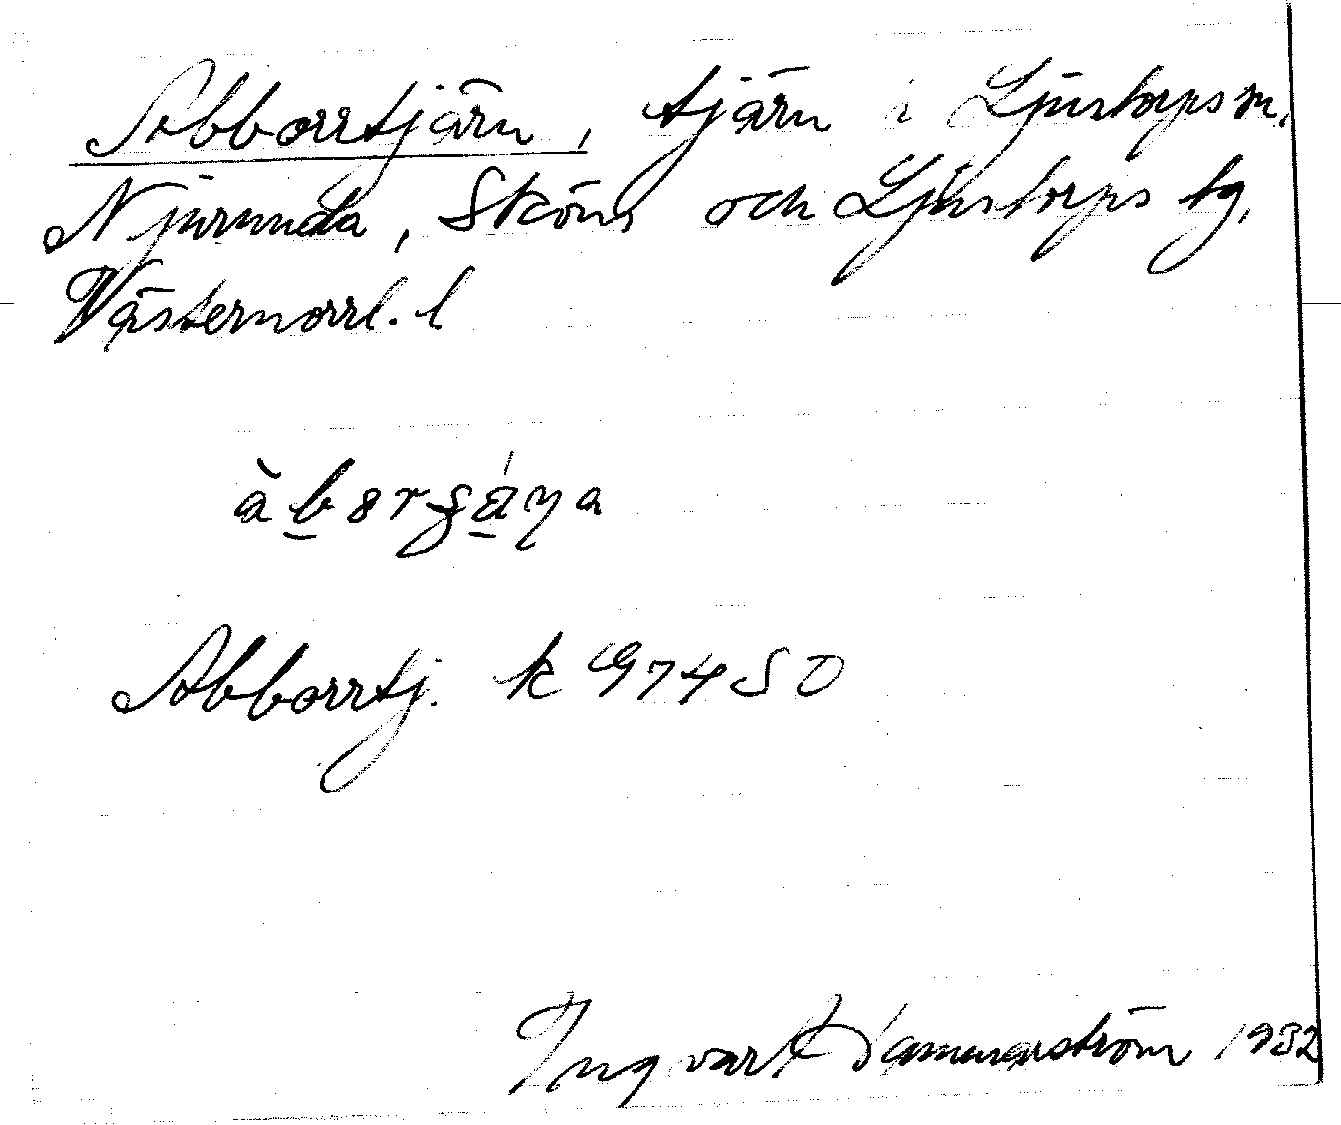 Abborrtjärn, tjärn i Ljustorps sn.
Njurunda, Sköns och Ljustorps tg,
Västernorrl. l
Abborrtj. k 97450
Ingvar 1932